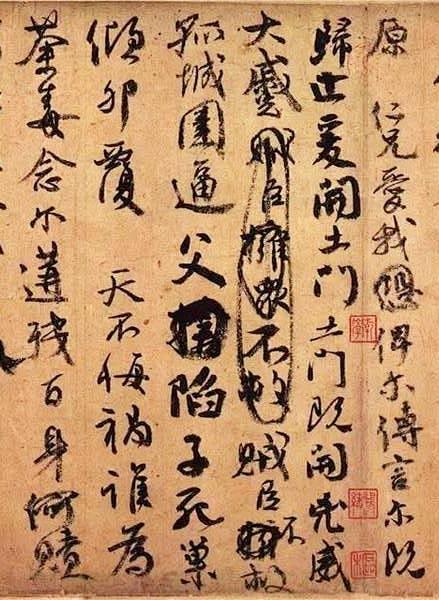 原仁兄愛我俾尔傳言尔既
歸止爰開土門土門既開凶威
大蹙賊臣擁衆不救賊臣不救
孤城圍逼父陷子死巢
傾卵覆天不悔禍誰為
荼毒念尔遘殘百身何贖